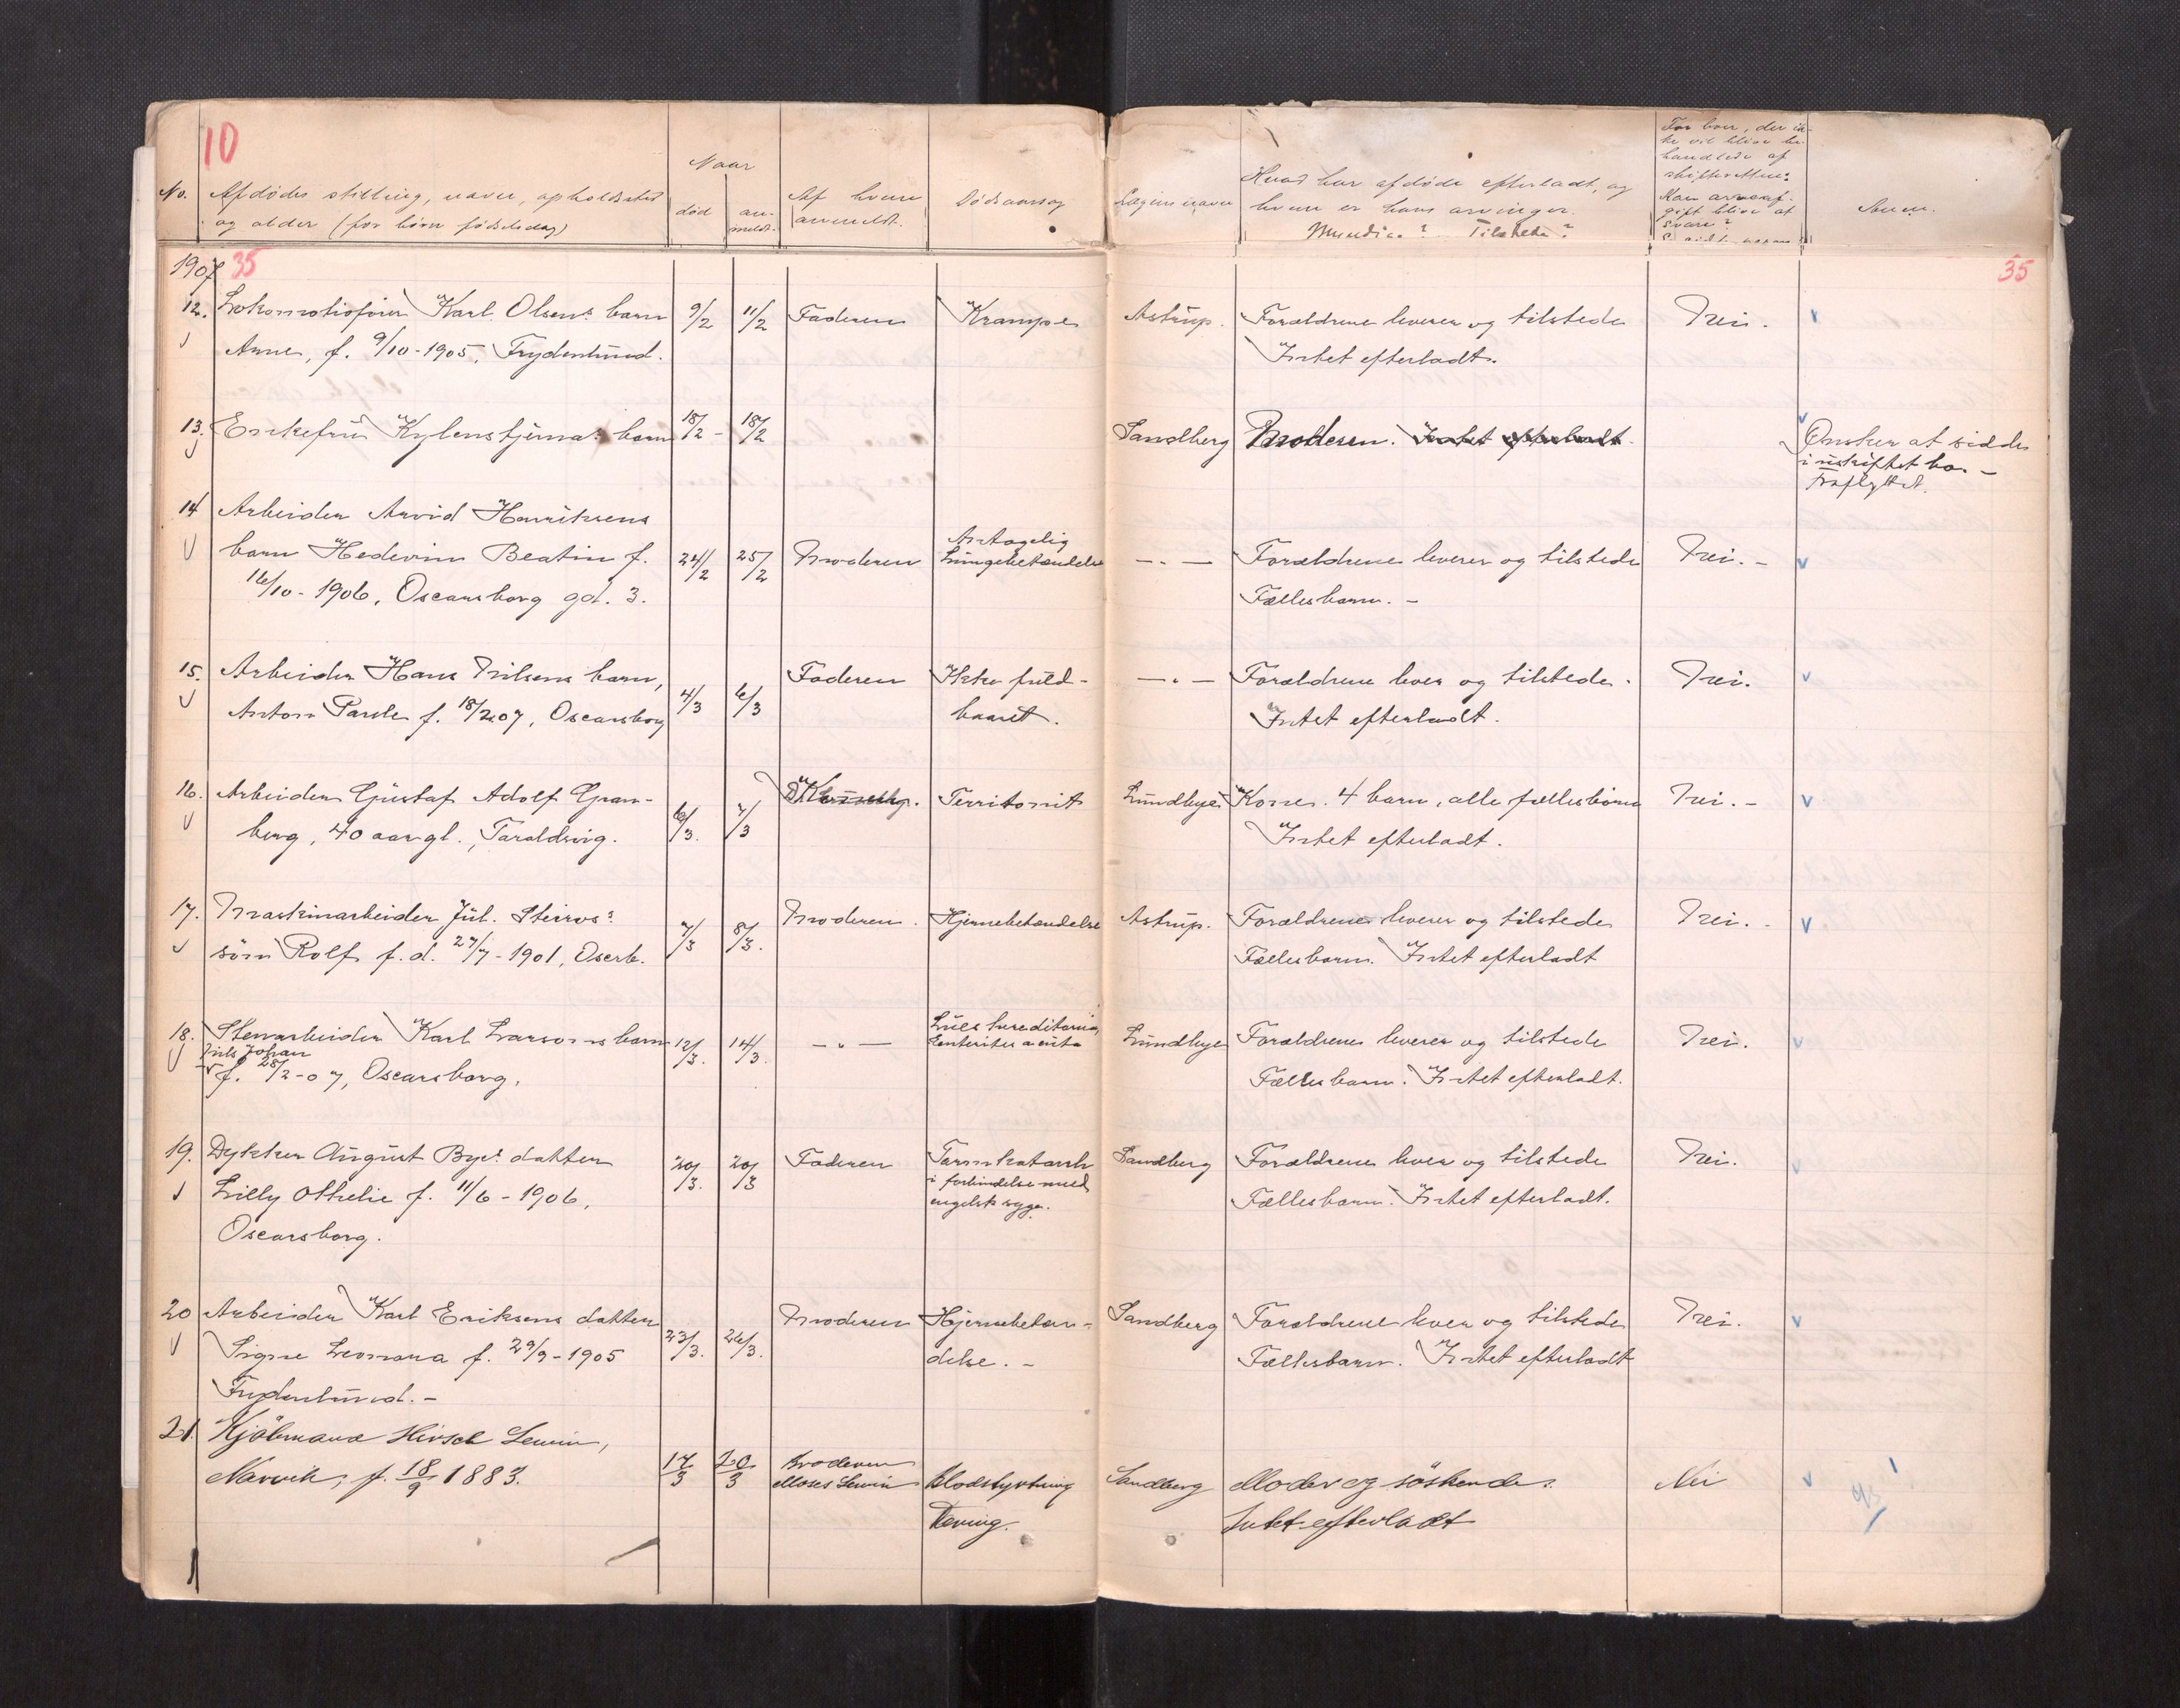 10
No.
Afdødes stilling, navn, opholdssted
og alder (for børn fødselsdag)
Naar
død
an-
meldt.
Af hvem
anmeldt.
Dødsaarsag
Lægens navn
Hvad har afdøde efterladt, og
hvem er hans arvinger.
Myndige? Tilstede?
For boer, der ik-
ke vil blive be-
handlede af
skifteretten:
Kan arveaf-
gift blive at
svare?
Anm.
1907
35
35
12. Lokomotivfører Karl Olsens barn 9/2 11/2 Faderen Krampe Astrup. Forældrene lever og tilstede Nei.
Anne, f. 9/10-1905, Frydenlund. Intet efterladt.
13. Enkefru Kylenstjernas barn 18/2 - 18/2 Sandberg Moderen. Intet efterladt. Ønsker at sidde
i uskiftet bo. -
Fraflyttet.
14 Arbeider Arvid Henriksens
barn Hedevin Beatin f. 24/2 25/2 Moderen Antagelig
Lungebetændelse -„- Forældrene lever og tilstede Nei. -
16/10-1906, Oscarsborg gd. 3. Fællesbarn. -
15. Arbeider Hans Nilsens barn, 4/3 6/3 Faderen Ikke fuld- -„- Forældrene lever og tilstede. Nei.
Anton Parele f. 18/2 07, Oscarsborg baaret. Intet efterladt.
16. Arbeider Gustaf Adolf Gran- 6/3. 7/3 Territonit Lundbye Kone. 4 barn, alle fællesbørn Nei. -
berg, 40 aar gl., Taraldsvig. Intet efterladt.
17. Maskinarbeider Jul. 7/3 8/3. Moderen. Hjernebetændelse Astrup. Forældrene lever og tilstede Nei. -
søn Rolf f. d. 27/7-1901, Oscarb. Fællesbarn. Intet efterladt
18. Stenarbeider Karl Larsons barn 12/3. 14/3. -„- Lues hereditaria,
Enteritis acuta Lundbye Forældrene lever og tilstede Nei.
Nils Johan
f. 28/2-07, Oscarsborg. Fællesbarn. Intet efterladt.
19. Dykker August Byes datter 20/3. 20/3 Faderen Tarmkatarrh
i forbindelse med
engelsk syge. Sandberg Forældrene lever og tilstede Nei.
Lilly Othelie f. 11/6-1906, Fællesbarn. Intet efterladt.
Oscarsborg.
20 Arbeider Karl Eriksens datter 23/3. 26/3. Moderen Hjernebetæn- Sandberg Forældrene lever og tilstede Nei.
Signe Leonora f. 29/9-1905 delse. - Fællesbarn. Intet efterladt
Frydenlund. -
21. Kjøbmand Hirsch Lewin,
Narvik, f. 18/9 1883. 17/3 20/3 Broderen
Moses Lewin Blodstyrtning
Tæring. Sandberg Moder og søskende. Nei
Intet efterladt